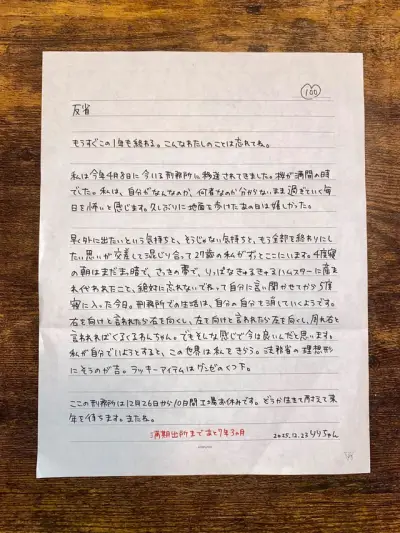 100
反省
もうすぐこの1年も終わる。こんなわたしのことは忘れてね。
私は今年4月8日に今いる刑務所に移送されてきました。桜が満開の時
でした。私は、自分がなんなのか、何者なのか分からないまま過ぎていく毎
日を怖いと感じます。久しぶりに地面を歩けたあの日は嬉しかった。
早く外に出たいという気持ちと、そうじゃない気持ちと、もう全部を終わりにし
たい思いが交差して混じり合って27歳の私がずっとここにいます。4度寝
の朝はまだ真っ暗で、さっきの夢で、りっぱなきゅるきゅるハムスターに産ま
れくやわれたこと、絶対に忘れないでねって自分に言い聞かせてから5度
寝に入った今日。刑務所での生活は、自分の自分を消していくようです。
右を向けと言われたら右を向くし、左を向けと言われたら左を向くし、周れ右と
言われればくるくるわんちゃん。でもそんな感じで今は良いんだと思います。
私が自分でいようとすると、この世界は私をきらう。法務省の理想形
にそうのが吉。ラッキーアイテムはグンゼのくつ下。
ここの刑務所は12月26日から10日間工場お休みです。どうか生きて耐えて来
年を待ちます。またね。
満期出所まであと7年3ヵ月
2025.12.23 りりちゃん